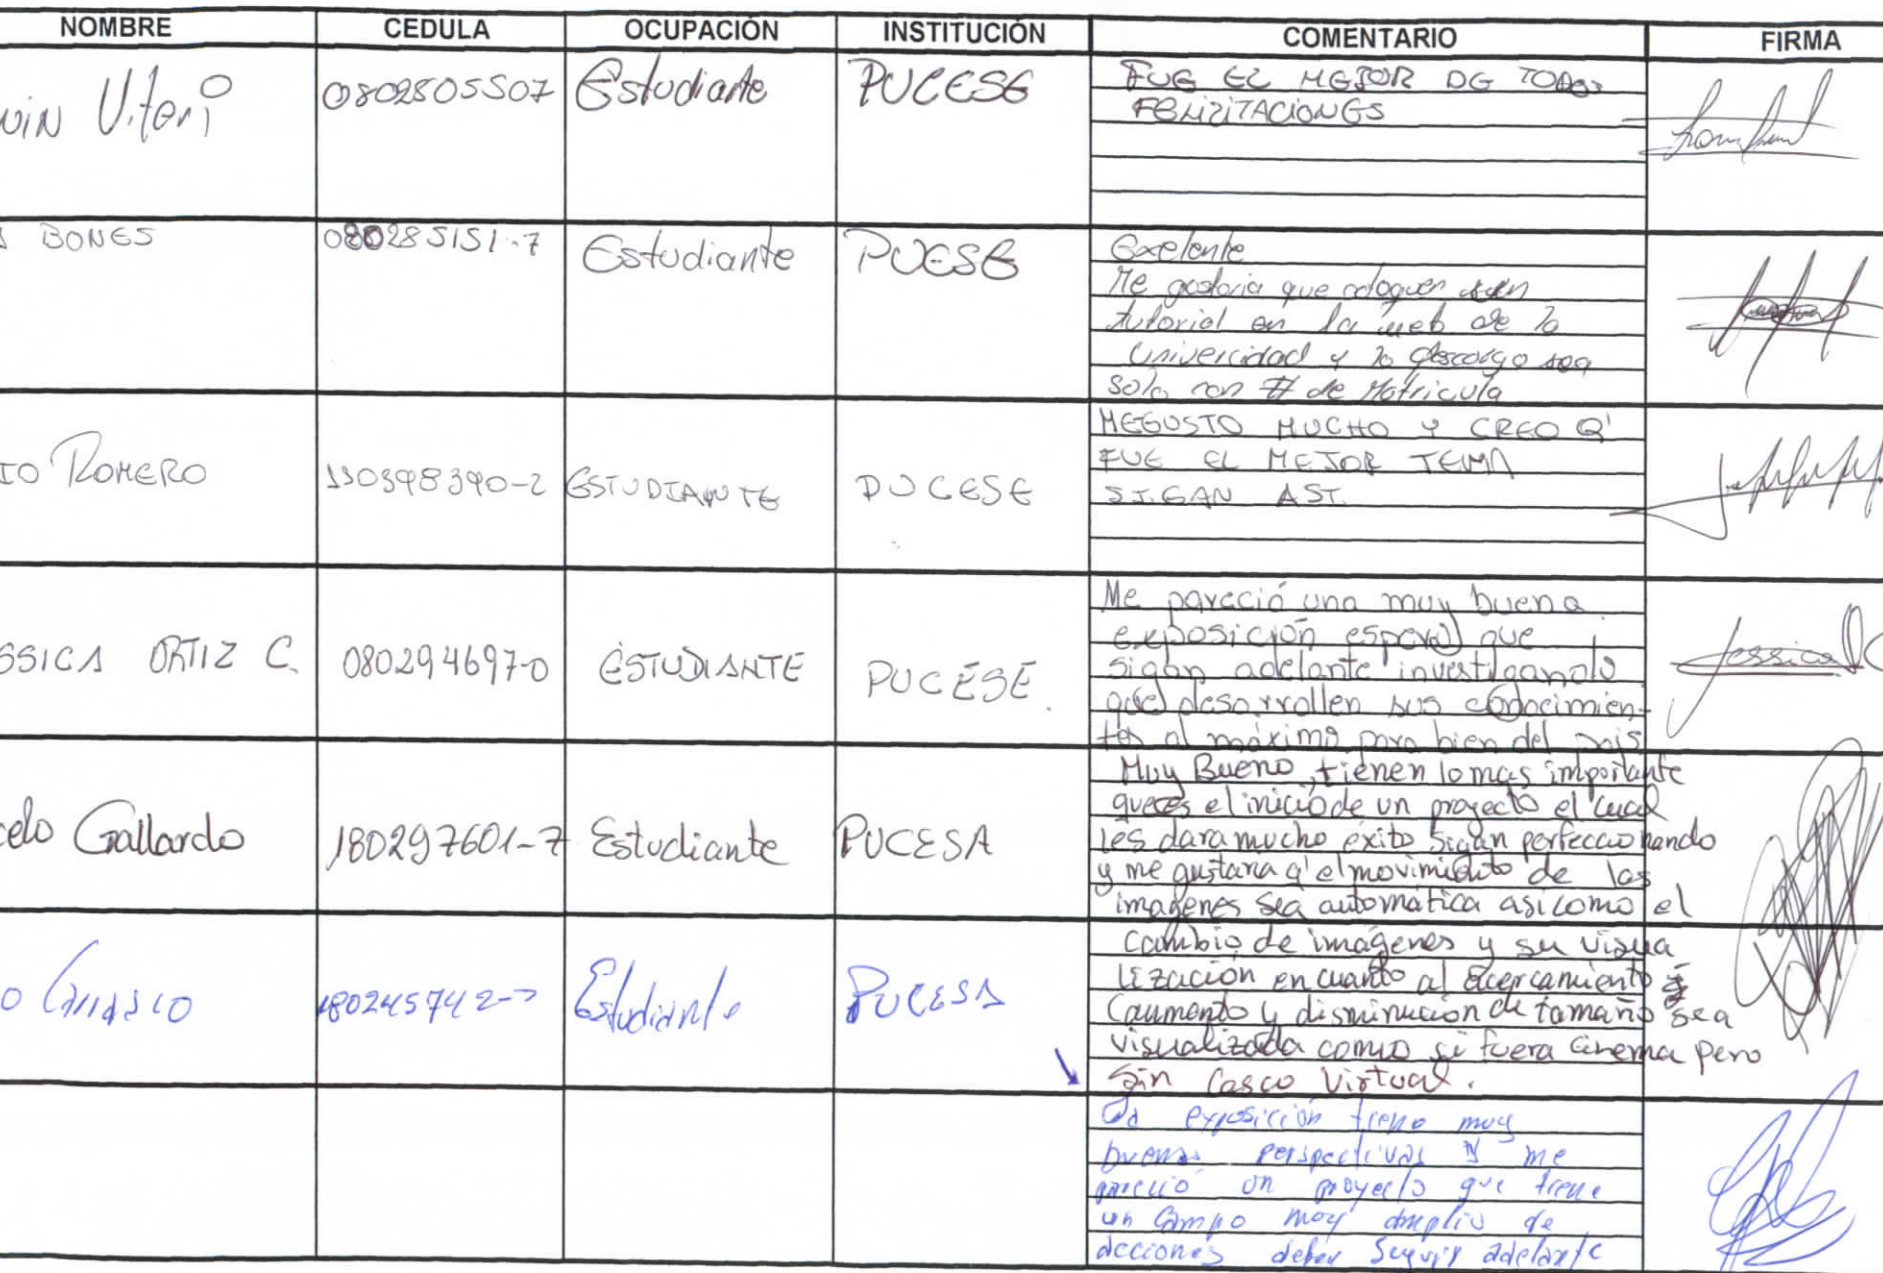 NOMBRE CEDULA OCUPACIÓN INSTITUCIÓN COMENTARIO FIRMA
Viteri 0802805507 Estudiante PUCESE
FUE EL MEJOR DE TODOS
FELIZITACIONES
BONES 080285151-7 Estudiante PUESE
Exelente
Me gostaria que coloquen
tutorial en la web de la
Univercidad y la descarga sea
solo con # de Matricula
ROMERO 130398390-2 ESTUDIANTE PUCESE
MEGUSTO MUCHO Y CREO Q'
FUE EL MEJOR TEMA
SIGAN ASI.
SSICA ORTIZ C. 080294697-0 ESTUDIANTE PUCESE.
Me pareció una muy buena
exposición espero que
sigan adelante investigando
que desarrollen sus conocimien-
tos al máximo para bien del pais
Jessica
celo Gallardo 180297601-7 Estudiante PUCESA
Muy Bueno, tienen lo mas importante
que es el inicio de un proyecto el cual
les dara mucho éxito sigan perfeccionando
y me gustaria q' el movimiento de las
imagenes sea automática asi como el
cambio de imágenes y su visua
lización en cuanto al acercamiento
(aumento y disminución de tamaño sea
visualizada como si fuera cinema pero
sin casco virtual.
o Carrasco 180245742-7 Estudiante PUCESA
La exposición tiene muy
buenas perspectivas y me
pareció un proyecto que tiene
un campo muy amplio de
acciones deben seguir adelante